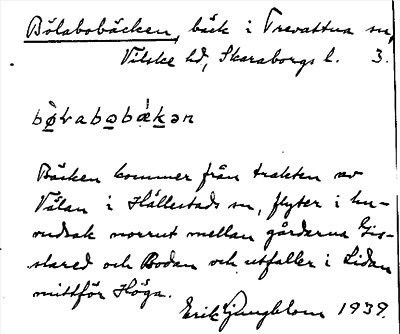 Bölabobäcken, bäck i Trevattna sn,
Vilske hd, Skaraborgs l. 3.
Bäcken kommer från trakten av
Vålan i Hällestads sn, flyter i hu-
vudsak norrut mellan gårdarna Gis-
slared och Bodan och utfaller i Lidan
mittför Höga.
Erik Ljungblom 1939.